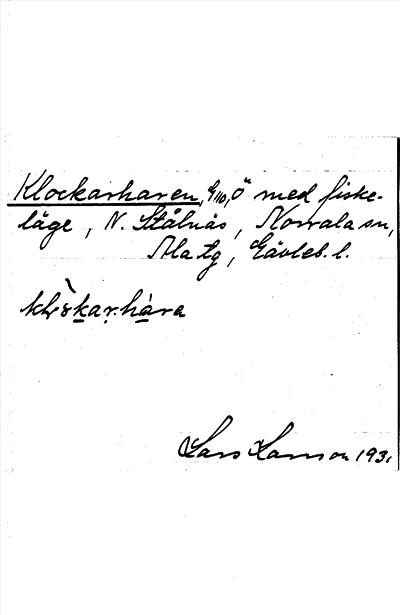 Klockarharen, G110, Ö med fiske-
läge, N. Stålnäs, Norrala sn,
Ala tg, Gävleb. l.
Lars Larsson 193